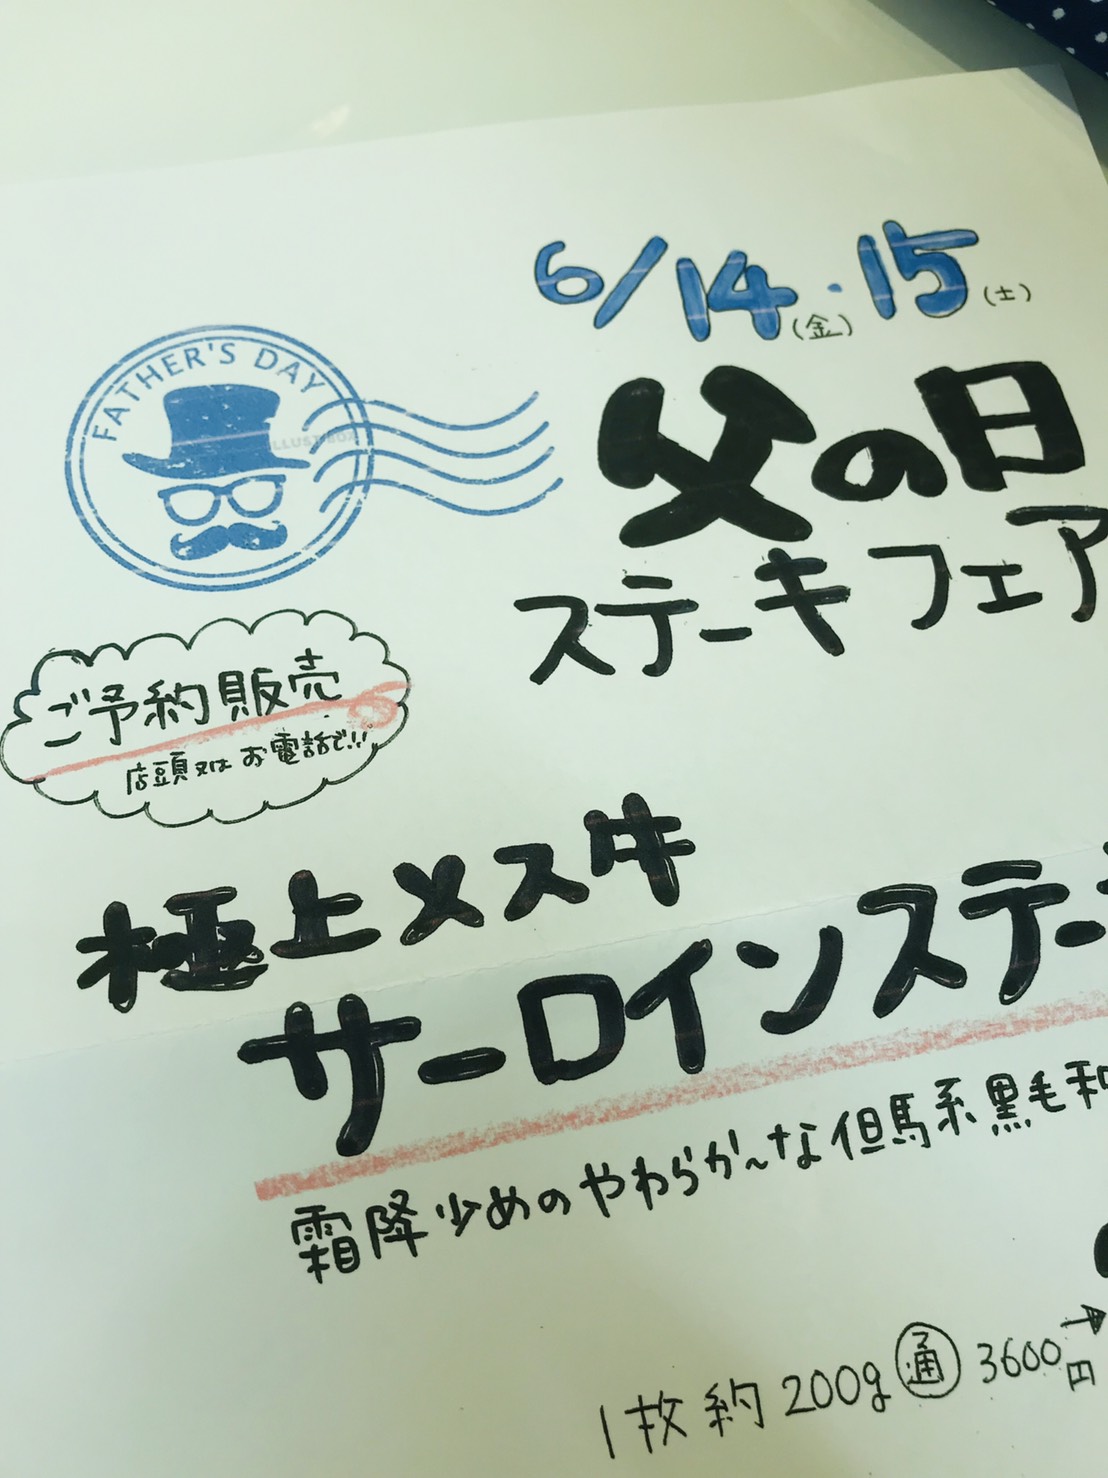 6/14(金)・15(土)
FATHER'S DAY
父の日
ステーキフェア
ご予約販売
店頭又はお電話で!!
極上メス牛
サーロインステー
霜降少めのやわらか~な但馬系黒毛和
1枚約200g 通 3600円→